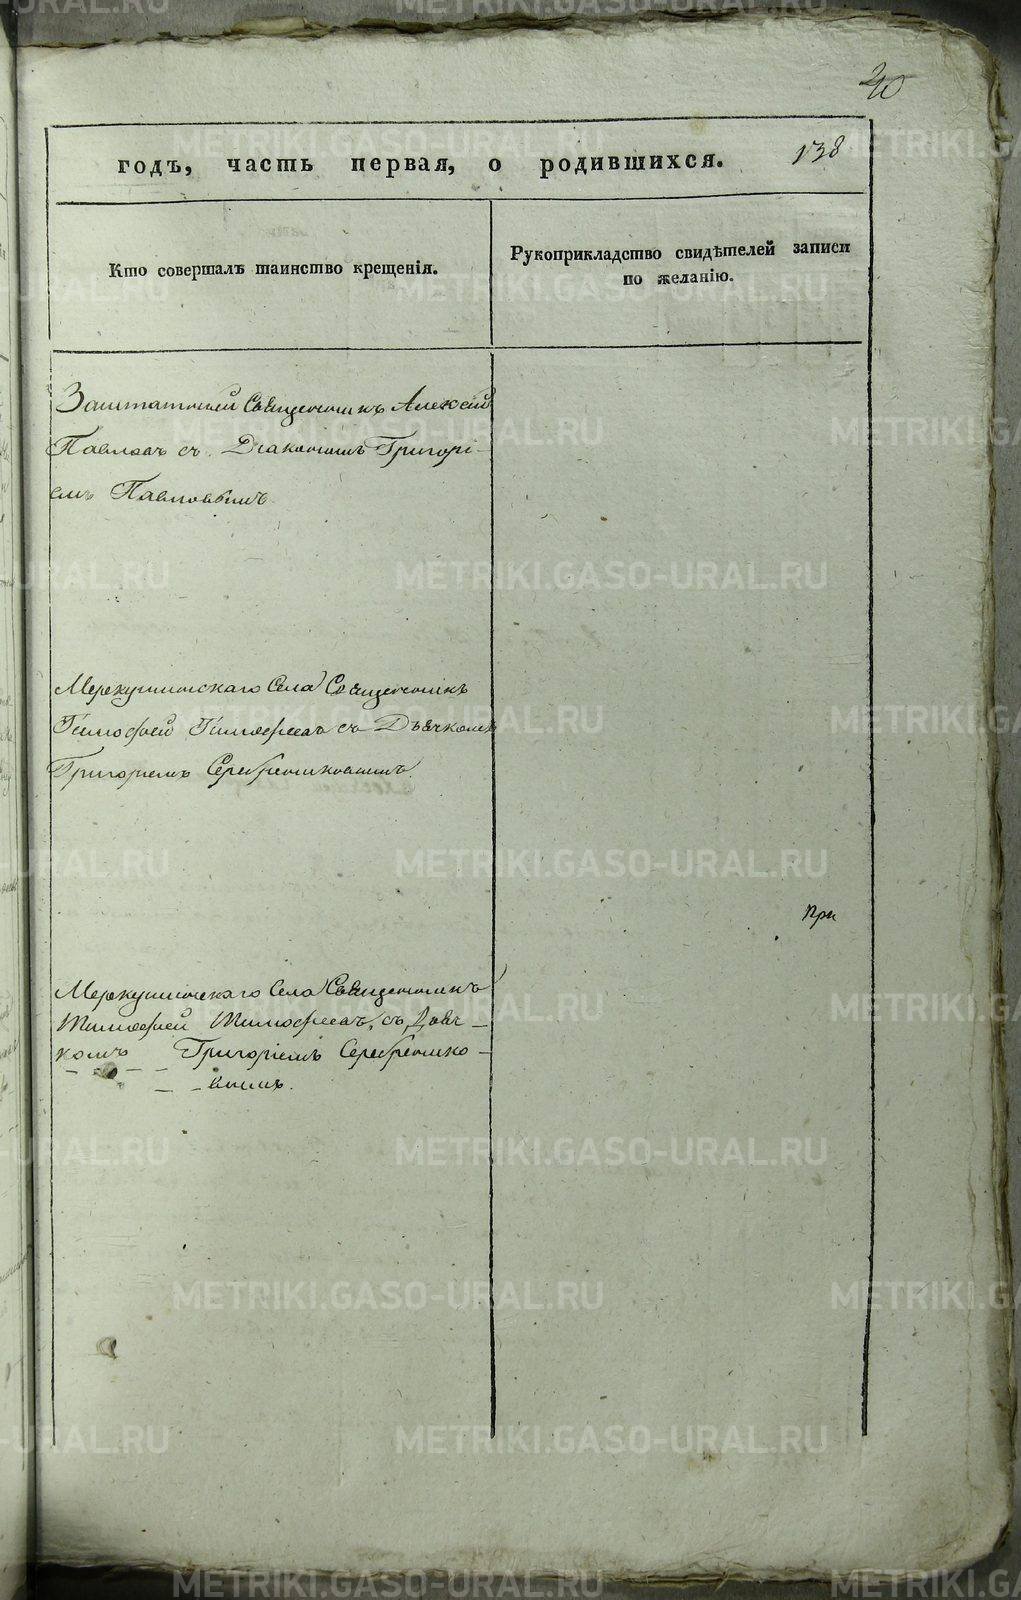 20
годъ, часть первая, о родившихся. 138
Кто совершалъ таинство крещенія.
Рукоприкладство свидѣтелей записи
по желанію.
Заштатный Священникъ Алексей
Павловъ съ Діакономъ Григорі-
емъ Павловымъ.
Меркушинскаго Села Священникъ
Тимофей Тимофеевъ съ Дьячкомъ
Григоріемъ Серебрениковымъ.
При
Меркушинскаго Села Священникъ
Тимофей Тимофеевъ, съ Дьяч-
комъ Григоріемъ Серебренико-
вымъ.
METRIKI.GASO-URAL.RU